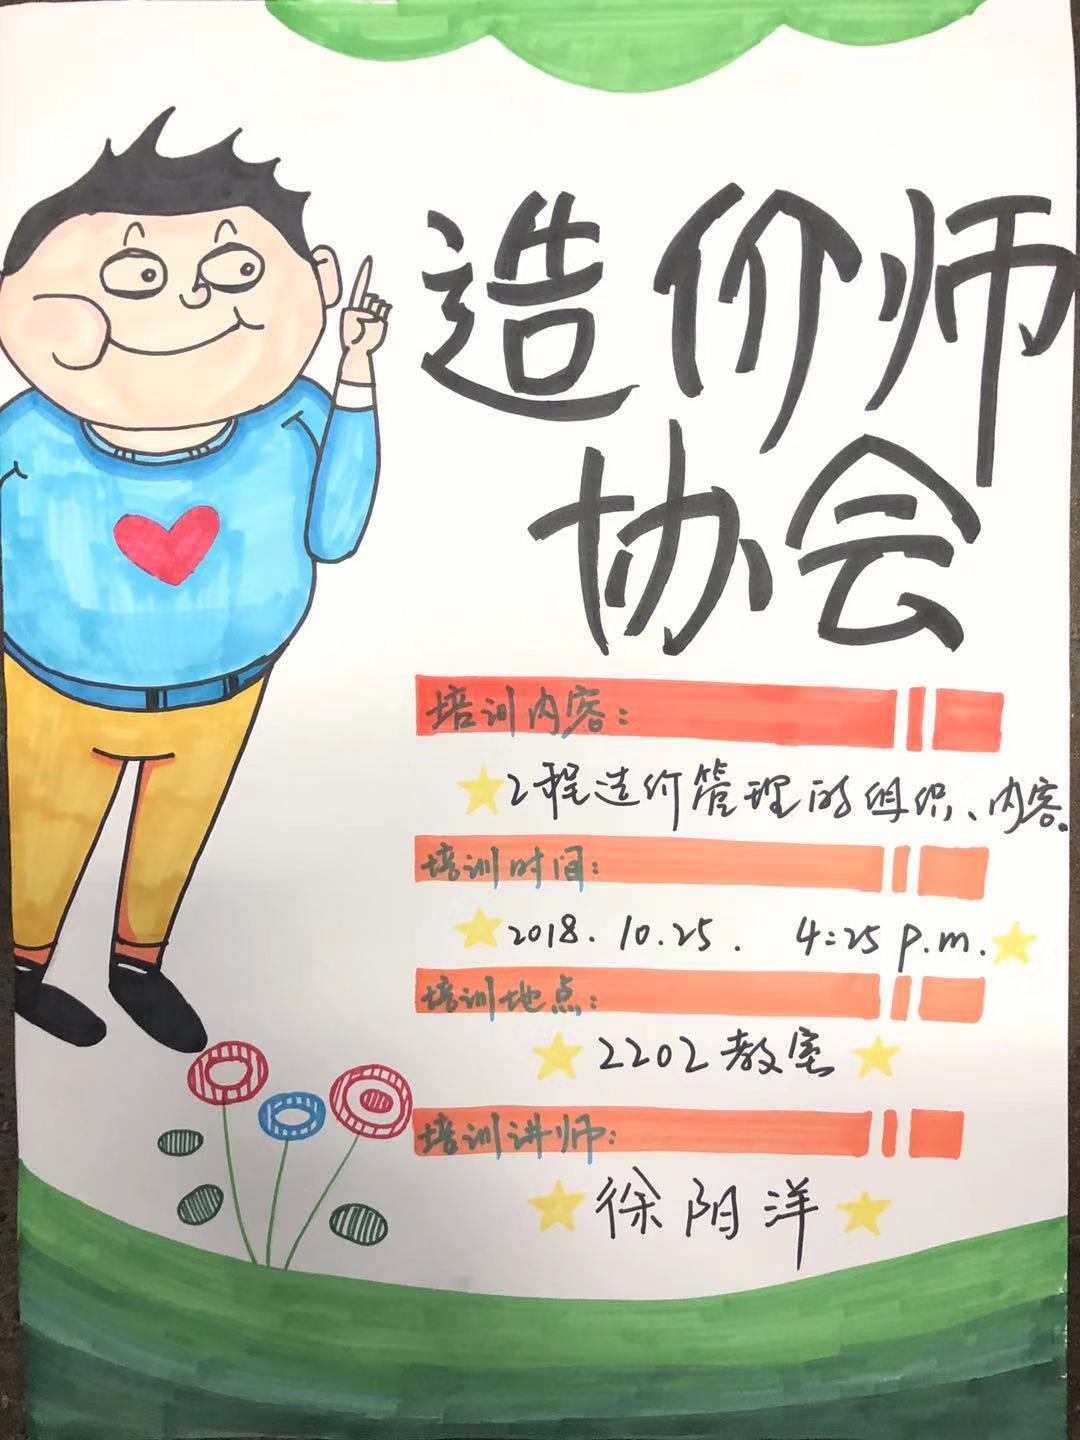 造价师
协会
培训内容：
工程造价管理的组织、内容。
培训时间：
2018.10.25. 4:25 p.m.
培训地点：
2202教室
培训讲师：
徐阳洋